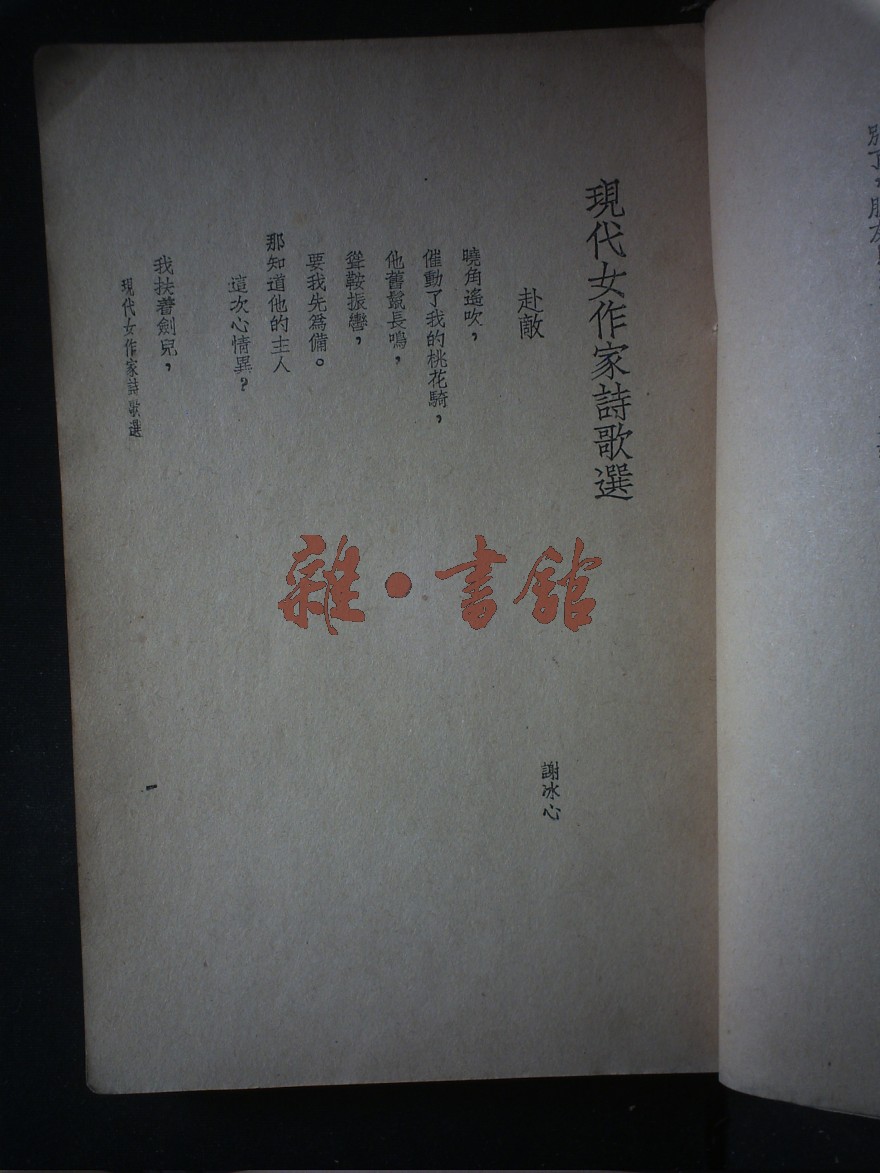 現代女作家詩歌選
赴敵
謝冰心
曉角遙吹，
催動了我的桃花騎，
他舊鬃長鳴，
聳鞍振轡，
要我先爲備。
那知道他的主人
這次心情異？
我扶著劍兒，
現代女作家詩歌選
一
雜·書館
別了，朋友